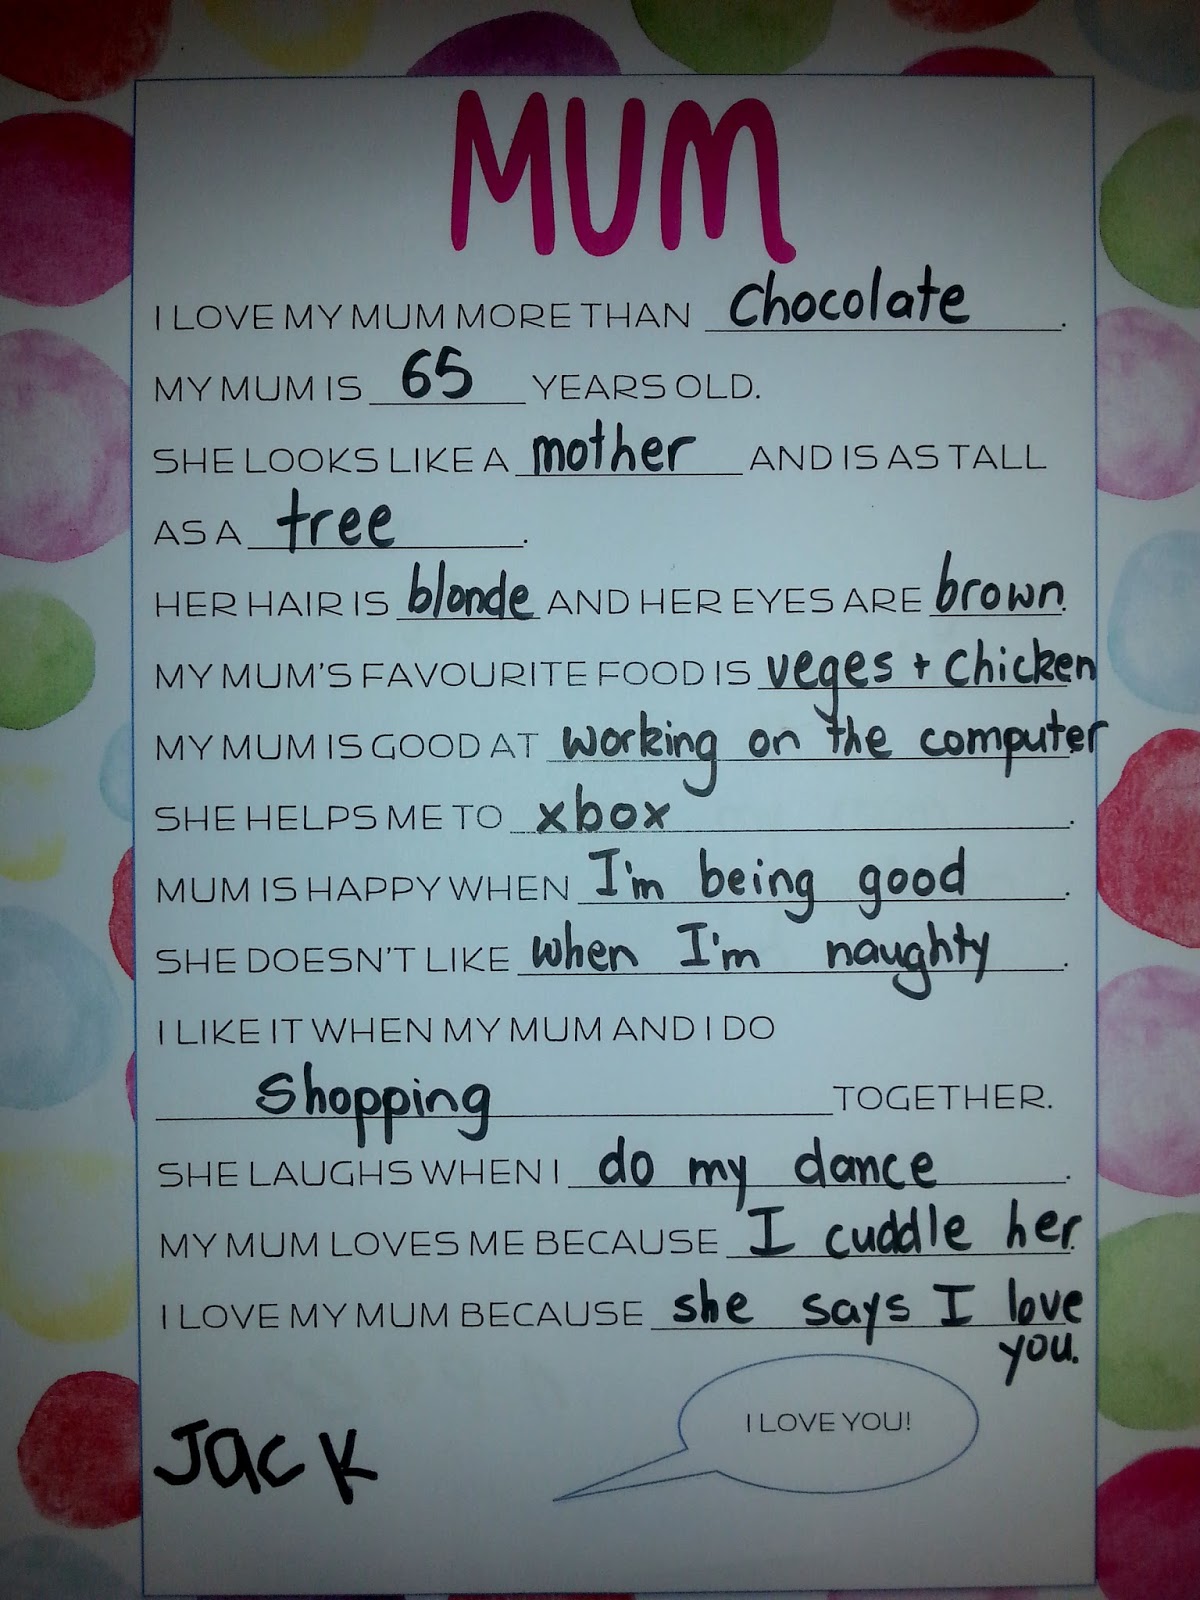 MUM
I LOVE MY MUM MORE THAN Chocolate.
MY MUM IS 65 YEARS OLD.
SHE LOOKS LIKE A mother AND IS AS TALL
AS A tree.
HER HAIR IS blonde AND HER EYES ARE brown.
MY MUM'S FAVOURITE FOOD IS veges + chicken
MY MUM IS GOOD AT working on the computer
SHE HELPS ME TO xbox.
MUM IS HAPPY WHEN I'm being good.
SHE DOESN'T LIKE when I'm naughty.
I LIKE IT WHEN MY MUM AND I DO
Shopping TOGETHER.
SHE LAUGHS WHEN I do my dance.
MY MUM LOVES ME BECAUSE I cuddle her.
I LOVE MY MUM BECAUSE she says I love
you.
I LOVE YOU!
Jack